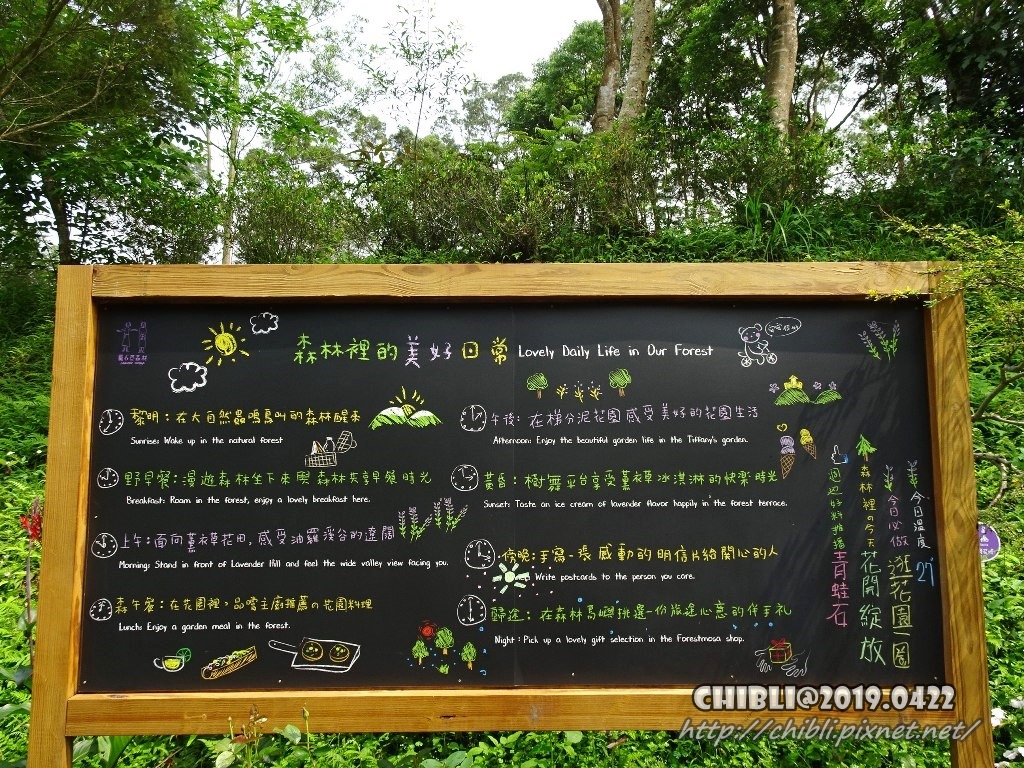 森林裡的美好日常 Lovely Daily Life in Our Forest
黎明：在大自然蟲鳴鳥叫的森林醒來
Sunrise: Wake up in the natural forest
野早餐：漫遊森林坐下來與森林共享早餐時光
Breakfast: Roam in the forest, enjoy a lovely breakfast here.
上午：面向薰衣草花田，感受油羅溪谷的遼闊
Morning: Stand in front of Lavender Hill and feel the wide valley view facing you.
森午餐：在花園裡，品嚐主廚推薦の花園料理
Lunch: Enjoy a garden meal in the forest.
午後：在梯分泥花園感受美好的花園生活
Afternoon: Enjoy the beautiful garden life in the Tiffany's garden.
黃昏：樹舞平台享受薰衣草冰淇淋的快樂時光
Sunset: Taste an ice cream of lavender flavor happily in the forest terrace.
傍晚：手寫一張感動的明信片給關心的人
Write postcards to the person you care.
歸途：在森林島嶼挑選一份旅途心意的伴手禮
Night : Pick up a lovely gift selection in the Forestmosa shop.
今日溫度 27
今日必做 逛花園一圈
森林裡の今天 花開綻放
週邊好好推播 青蛙石
CHIBLI@2019.0422
http://chibli.pixnet.net/